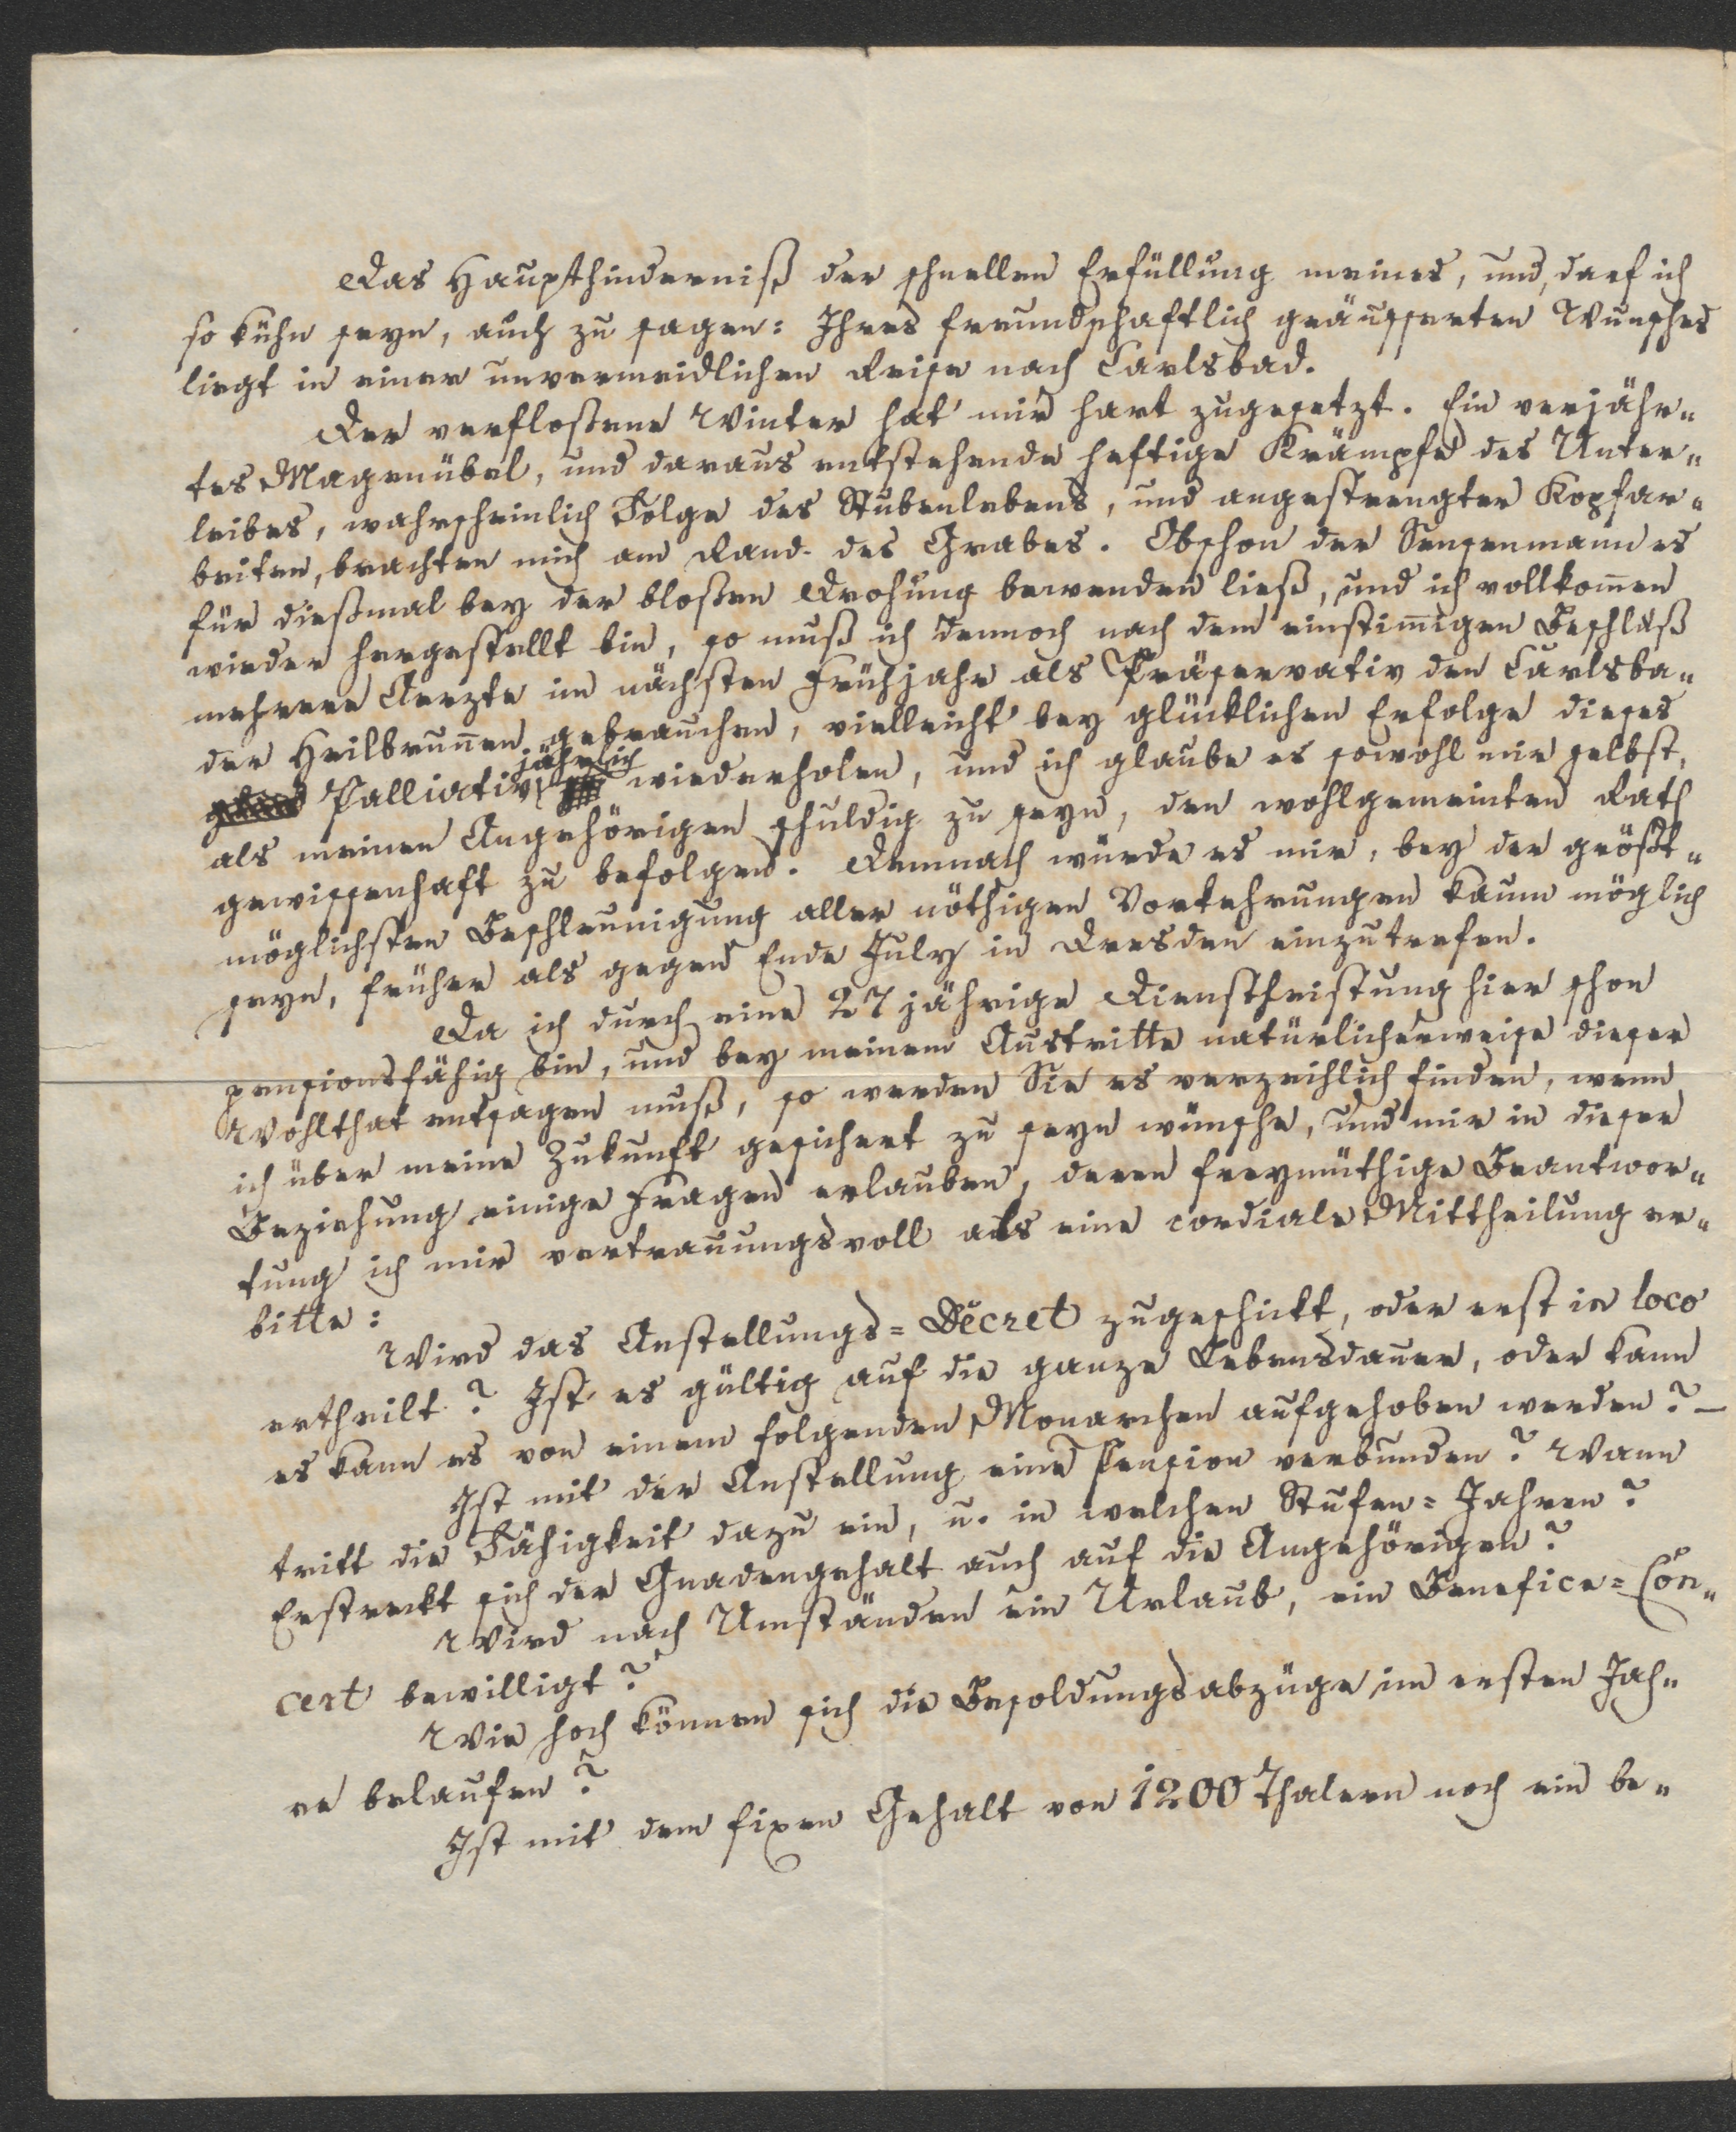 Das Haupthinderniß der schnellen Erfüllung meines, und, darf ich
so kühn seyn, auch zu sagen: Ihres freundschaftlich geäusserten Wunsches
liegt in einer unvermeidlichen Reise nach Carlsbad.
Der verfloßene Winter hat mir hart zugesetzt. Ein verjähr„
tes Magenübel, und daraus entstehende heftige Krämpfe des Unter„
leibes, wahrscheinlich Folge des Stubenlebens, und angestrengter Kopfar„
beiten, brachten mich am Rand des Grabes. Obschon der Sensenmann es
für dießmal bey der bloßen Drohung bewenden ließ, und ich vollkom̅en
wieder hergestellt bin, so muß ich dennoch nach dem einstim̅igen Beschluß
mehrere Aerzte im nächsten Frühjahr als Präservativ den Carlsba„
der Heilbrun̅en gebrauchen, vielleicht bey glücklichen Erfolge dieses
Palliativ jährlich wiederholen, und ich glaube es sowohl mir selbst,
als meinen Angehörigen schuldig zu seyn, den wohlgemeinten Rath
gewissenhaft zu befolgen. Demnach würde es mir, bey der größt„
möglichsten Beschleunigung aller nöthigen Vorkehrungen kaum möglich
seyn, früher als gegen Ende July in Dresden einzutrefen.
Da ich durch eine 27 jährige Dienstleistung hier schon
pensionsfähig bin, und bey meinem Austritte natürlicherweise dieser
Wohlthat entsagen muß, so werden Sie es verzeihlich finden, wenn
ich über meine Zukunft gesichert zu seyn wünsche, und mir in dieser
Beziehung einige Fragen erlauben, deren freymüthige Beantwor„
tung ich mir vertrauungsvoll als eine cordiale Mittheilung er„
bitte:
Wird das Anstellungs=Decret zugeschickt, oder erst in loco
ertheilt? Ist es gültig auf die ganze Lebensdauer, oder kann
es kann es von einem folgenden Monarchen aufgehoben werden? –
Ist mit der Anstellung eine Pension verbunden? Wann
tritt die Fähigkeit dazu ein, u. in welchen Stufen=Jahren?
Erstreckt sich der Gnadengehalt auch auf die Angehörigen?
Wird nach Umständen ein Urlaub, ein Benefice=Con„
cert bewilligt?
Wie hoch können sich die Besoldungsabzüge im ersten Jah„
re belaufen?
Ist mit dem fixen Gehalt von 1200 Thalern noch ein be„